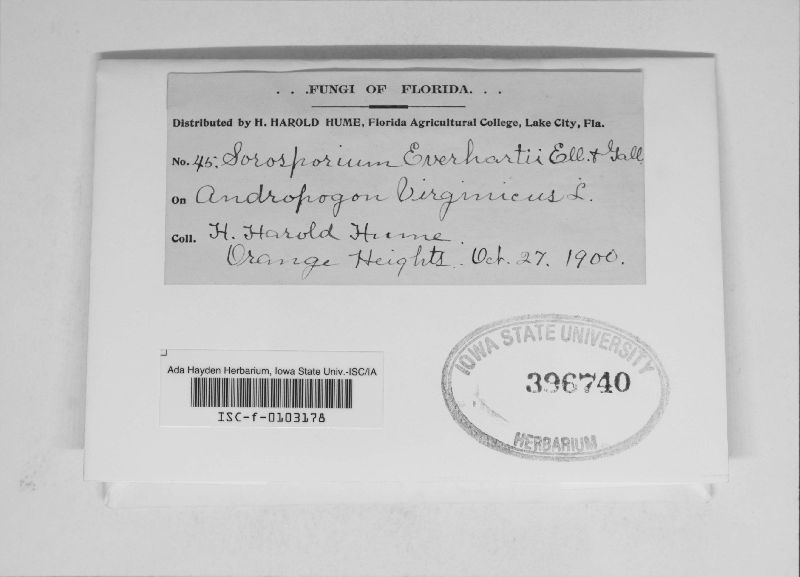 . . .FUNGI OF FLORIDA. . .
Distributed by H. HAROLD HUME, Florida Agricultural College, Lake City, Fla.
No. 45. Sorosporium Everhartii Ell. & Gall.
On Andropogon Virginicus L.
Coll. H. Harold Hume.
Orange Heights. Oct. 27. 1900.
IOWA STATE UNIVERSITY
396740
HERBARIUM
Ada Hayden Herbarium, Iowa State Univ.-ISC/IA
ISC-f-0103178